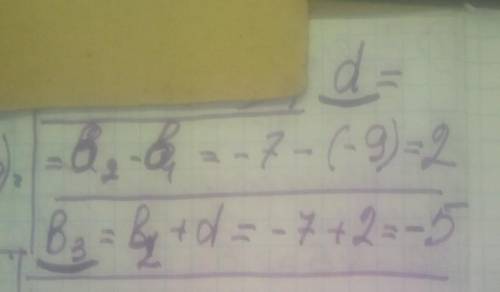 d =
= b₂ - b₁ = -7 - (-9) = 2
b₃ = b₂ + d = -7 + 2 = -5